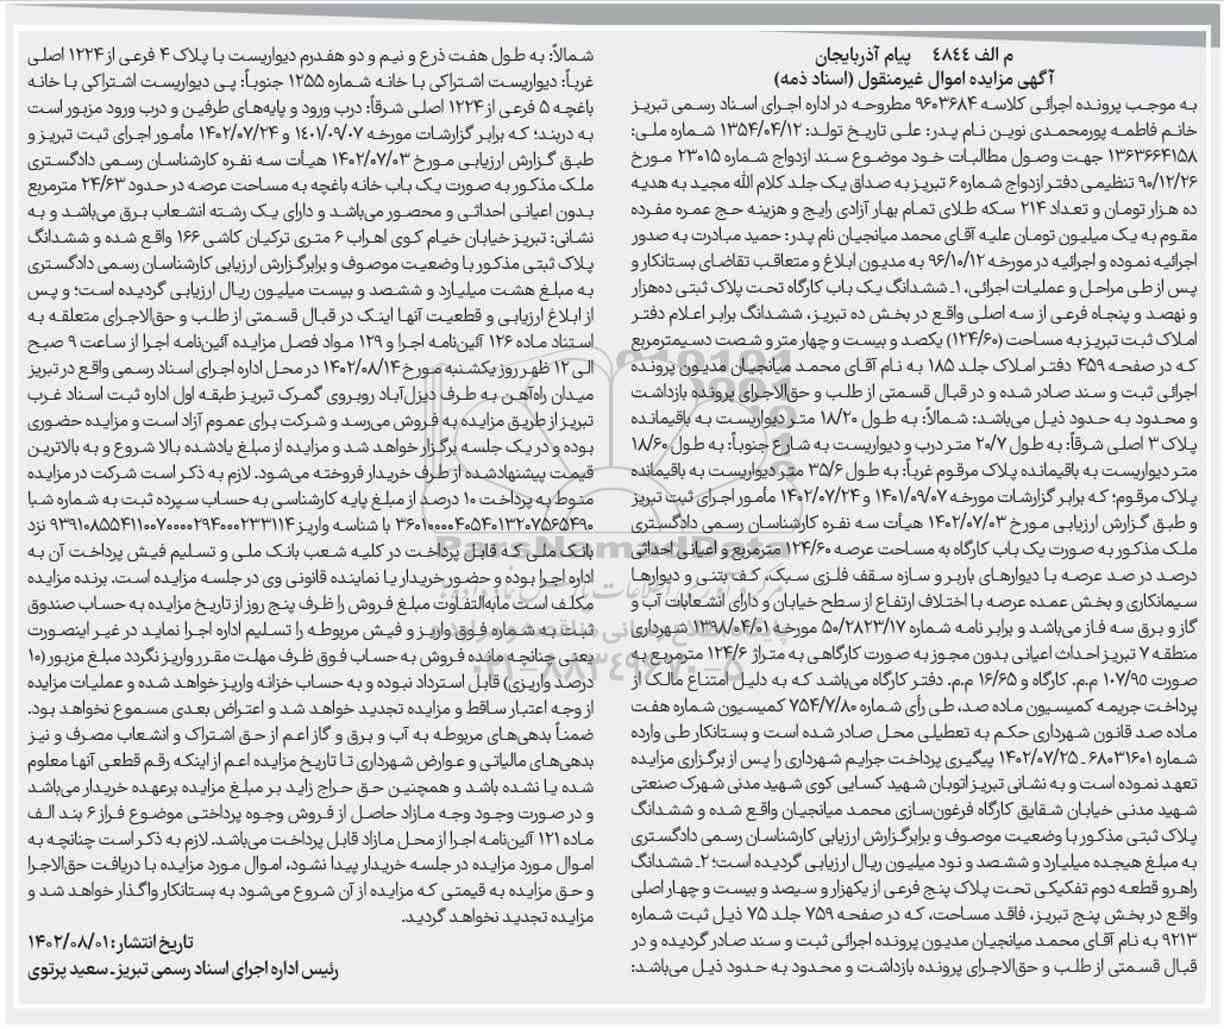 م الف ٤٨٤٤ پیام آذربایجان
آگهی مزایده اموال غیرمنقول (اسناد ذمه)
به موجب پرونده اجرائی کلاسه ۹۶۰۳۶۸۴ مطروحه در اداره اجرای اسناد رسمی تبریز
خانم فاطمه پورمحمدی نوین نام پدر: علی تاریخ تولد: ۱۳۵۴/۰۴/۱۲ شماره ملی:
۱۳۶۳۶۶۴۱۵۸ جهت وصول مطالبات خود موضوع سند ازدواج شماره ۲۳۰۱۵ مورخ
۹۰/۱۲/۲۶ تنظیمی دفتر ازدواج شماره ۶ تبریز به صداق یک جلد کلام الله مجید به هدیه
ده هزار تومان و تعداد ۲۱۴ سکه طلای تمام بهار آزادی رایج و هزینه حج عمره مفرده
مقوم به یک میلیون تومان علیه آقای محمد میانجیان نام پدر: حمید مبادرت به صدور
اجرائیه نموده و اجرائیه در مورخه ۹۶/۱۰/۱۲ به مدیون ابلاغ و متعاقب تقاضای بستانکار و
پس از طی مراحل و عملیات اجرائی، ۱ـ ششدانگ یک باب کارگاه تحت پلاک ثبتی ده‌هزار
و نهصد و پنجاه فرعی از سه اصلی واقع در بخش ده تبریز، ششدانگ برابر اعلام دفتر
املاک ثبت تبریز به مساحت (۱۲۴/۶۰) یکصد و بیست و چهار متر و شصت دسیمترمربع
که در صفحه ۴۵۹ دفتر املاک جلد ۱۸۵ به نام آقای محمد میانجیان مدیون پرونده
اجرائی ثبت و سند صادر شده و در قبال قسمتی از طلب و حق‌الاجرای پرونده بازداشت
و محدود به حدود ذیل می‌باشد: شمالاً: به طول ۱۸/۲۰ متر دیواریست به باقیمانده
پلاک ۳ اصلی شرقاً: به طول ۲۰/۷ متر درب و دیواریست به شارع جنوباً: به طول ۱۸/۶۰
متر دیواریست به باقیمانده پلاک مرقوم غرباً: به طول ۳۵/۶ متر دیواریست به باقیمانده
پلاک مرقوم؛ که برابر گزارشات مورخه ۱۴۰۱/۰۹/۰۷ و ۱۴۰۲/۰۷/۲۴ مأمور اجرای ثبت تبریز
و طبق گزارش ارزیابی مورخ ۱۴۰۲/۰۷/۰۳ هیأت سه نفره کارشناسان رسمی دادگستری
ملک مذکور به صورت یک باب کارگاه به مساحت عرصه ۱۲۴/۶۰ مترمربع و اعیانی احداثی
درصد در صد عرصه با دیوارهای باربر و سازه سقف فلزی سبک، کف بتنی و دیوارها
سیمانکاری و بخش عمده عرصه با اختلاف ارتفاع از سطح خیابان و دارای انشعابات آب و
گاز و برق سه فاز می‌باشد و برابر نامه شماره ۵۰/۲۸۲۳/۱۷ مورخه ۱۳۹۸/۰۴/۰۱ شهرداری
منطقه ۷ تبریز احداث اعیانی بدون مجوز به صورت کارگاهی به متراژ ۱۲۴/۶ مترمربع به
صورت ۱۰۷/۹۵ م.م. کارگاه و ۱۶/۶۵ م.م. دفتر کارگاه می‌باشد که به دلیل امتناع مالک از
پرداخت جریمه کمیسیون ماده صد، طی رأی شماره ۷۵۴/۷/۸۰ کمیسیون شماره هفت
ماده صد قانون شهرداری حکم به تعطیلی محل صادر شده است و بستانکار طی وارده
شماره ۶۸۰۳۱۶۰۱ ـ ۱۴۰۲/۰۷/۲۵ پیگیری پرداخت جرایم شهرداری را پس از برگزاری مزایده
تعهد نموده است و به نشانی تبریز اتوبان شهید کسایی کوی شهید مدنی شهرک صنعتی
شهید مدنی خیابان شقایق کارگاه فرغون‌سازی محمد میانجیان واقع شده و ششدانگ
پلاک ثبتی مذکور با وضعیت موصوف و برابرگزارش ارزیابی کارشناسان رسمی دادگستری
به مبلغ هیجده میلیارد و ششصد و نود میلیون ریال ارزیابی گردیده است؛ ۲ـ ششدانگ
راهرو قطعه دوم تفکیکی تحت پلاک پنج فرعی از یکهزار و سیصد و بیست و چهار اصلی
واقع در بخش پنج تبریز، فاقد مساحت، که در صفحه ۷۵۹ جلد ۷۵ ذیل ثبت شماره
۹۲۱۳ به نام آقای محمد میانجیان مدیون پرونده اجرائی ثبت و سند صادر گردیده و در
قبال قسمتی از طلب و حق‌الاجرای پرونده بازداشت و محدود به حدود ذیل می‌باشد:
شمالاً: به طول هفت ذرع و نیم و دو هفدرم دیواریست با پلاک ۴ فرعی از ۱۲۲۴ اصلی
غرباً: دیواریست اشتراکی با خانه شماره ۱۲۵۵ جنوباً: پی دیواریست اشتراکی با خانه
باغچه ۵ فرعی از ۱۲۲۴ اصلی شرقاً: درب ورود و پایه‌های طرفین و درب ورود مزبور است
به دربند؛ که برابر گزارشات مورخه ۱۴۰۱/۰۹/۰۷ و ۱۴۰۲/۰۷/۲۴ مأمور اجرای ثبت تبریز و
طبق گزارش ارزیابی مورخ ۱۴۰۲/۰۷/۰۳ هیأت سه نفره کارشناسان رسمی دادگستری
ملک مذکور به صورت یک باب خانه باغچه به مساحت عرصه در حدود ۲۴/۶۳ مترمربع
بدون اعیانی احداثی و محصور می‌باشد و دارای یک رشته انشعاب برق می‌باشد و به
نشانی: تبریز خیابان خیام کوی اهراب ۶ متری ترکیان کاشی ۱۶۶ واقع شده و ششدانگ
پلاک ثبتی مذکور با وضعیت موصوف و برابرگزارش ارزیابی کارشناسان رسمی دادگستری
به مبلغ هشت میلیارد و ششصد و بیست میلیون ریال ارزیابی گردیده است؛ و پس
از ابلاغ ارزیابی و قطعیت آنها اینک در قبال قسمتی از طلب و حق‌الاجرای متعلقه به
استناد ماده ۱۲۶ آئین‌نامه اجرا و ۱۳۹ مواد فصل مزایده آئین‌نامه اجرا از ساعت ۹ صبح
الی ۱۲ ظهر روز یکشنبه مورخ ۱۴۰۲/۰۸/۱۴ در محل اداره اجرای اسناد رسمی واقع در تبریز
میدان راه‌آهن به طرف دیزل‌آباد روبروی گمرک تبریز طبقه اول اداره ثبت اسناد غرب
تبریز از طریق مزایده به فروش می‌رسد و شرکت برای عموم آزاد است و مزایده حضوری
بوده و در یک جلسه برگزار خواهد شد و مزایده از مبلغ یادشده بالا شروع و به بالاترین
قیمت پیشنهادشده از طرف خریدار فروخته می‌شود. لازم به ذکر است شرکت در مزایده
منوط به پرداخت ۱۰ درصد از مبلغ پایه کارشناسی به حساب سپرده ثبت به شماره شبا
۳۶۰۱۰۰۰۰۴۰۵۴۰۱۳۲۰۷۵۶۵۴۹۰ با شناسه واریز ۹۳۹۱۰۸۵۵۴۱۱۰۰۷۰۰۰۰۲۹۴۰۰۰۲۳۳۱۱۴ نزد
بانک ملی که قابل پرداخت در کلیه شعب بانک ملی و تسلیم فیش پرداخت آن به
اداره اجرا بوده و حضور خریدار یا نماینده قانونی وی در جلسه مزایده است. برنده مزایده
مکلف است مابه‌التفاوت مبلغ فروش را ظرف پنج روز از تاریخ مزایده به حساب صندوق
ثبت به شماره فوق واریز و فیش مربوطه را تسلیم اداره اجرا نماید در غیر اینصورت
یعنی چنانچه مانده فروش به حساب فوق ظرف مهلت مقرر واریز نگردد مبلغ مزبور (۱۰
درصد واریزی) قابل استرداد نبوده و به حساب خزانه واریز خواهد شده و عملیات مزایده
از وجه اعتبار ساقط و مزایده تجدید خواهد شد و اعتراض بعدی مسموع نخواهد بود.
ضمناً بدهی‌های مربوطه به آب و برق و گاز اعم از حق اشتراک و انشعاب مصرف و نیز
بدهی‌های مالیاتی و عوارض شهرداری تا تاریخ مزایده اعم از اینکه رقم قطعی آنها معلوم
شده یا نشده باشد و همچنین حق حراج زاید بر مبلغ مزایده برعهده خریدار می‌باشد
و در صورت وجود وجه مازاد حاصل از فروش وجوه پرداختی موضوع فراز ۶ بند الف
ماده ۱۲۱ آئین‌نامه اجرا از محل مازاد قابل پرداخت می‌باشد. لازم به ذکر است چنانچه به
اموال مورد مزایده در جلسه خریدار پیدا نشود، اموال مورد مزایده با دریافت حق‌الاجرا
و حق مزایده به قیمتی که مزایده از آن شروع می‌شود به بستانکار واگذار خواهد شد و
مزایده تجدید نخواهد گردید.
تاریخ انتشار: ۱۴۰۲/۰۸/۰۱
رئیس اداره اجرای اسناد رسمی تبریز ـ سعید پرتوی
ParsNamadData
۰۲۱-۸۸۳۴۹۶۷۰-۵